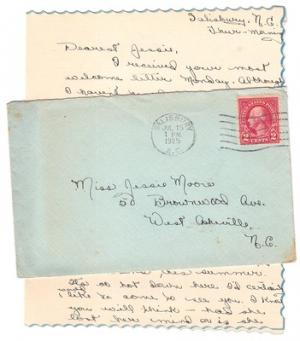 Salisbury, N.C.
Thur-morn
Dearest Jessie,
I received your most
welcome letter Monday. Although
I haven't
SALISBURY
JUL 15
1 PM
1925
N.C.
2 CENTS 2
Miss Jessie Moore
50 Brownwood Ave.
West Asheville,
N.C.
this summer.
It's so hot down here I'd certainly
like to come to see you. I know
you will think - had she
lost her mind or is she